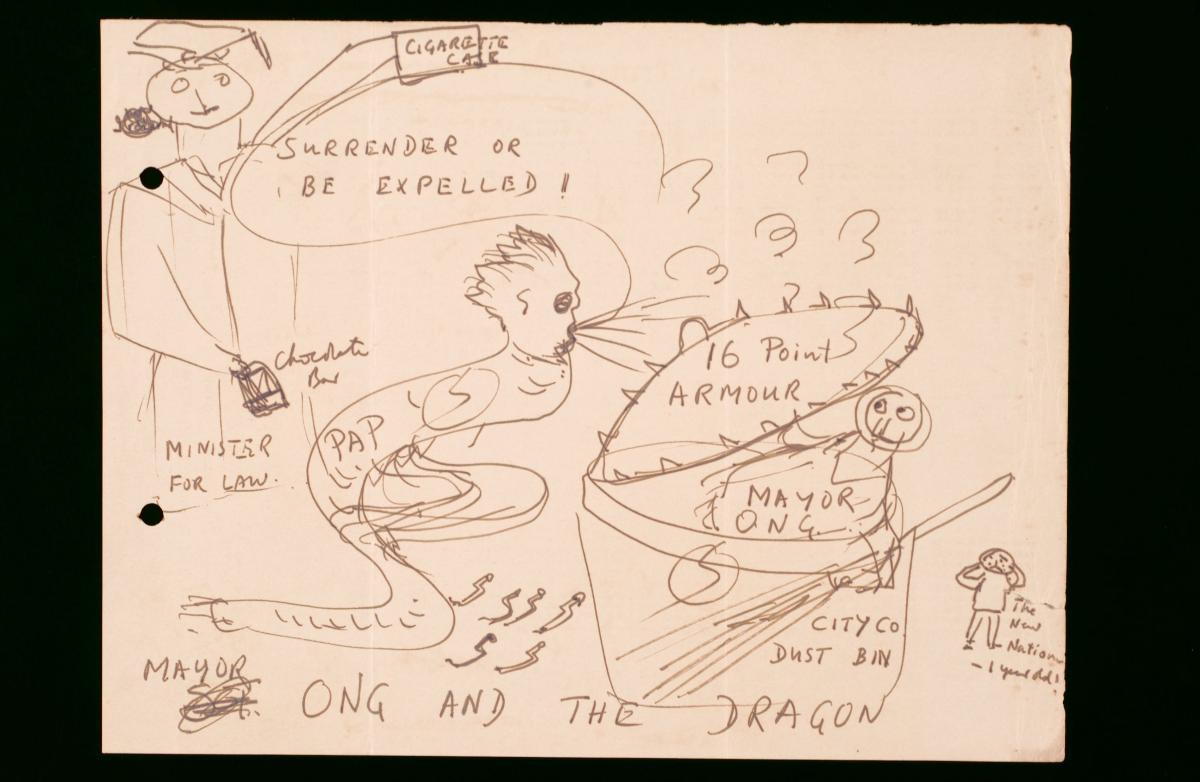 CIGARETTE
CASE
SURRENDER OR
BE EXPELLED !
Chocolate
Bar
16 Point
ARMOUR
PAP
MINISTER
FOR LAW.
MAYOR
ONG
The
New
Nation
- 1 year old!
CITY CO
DUST BIN
MAYOR
ONG AND THE DRAGON